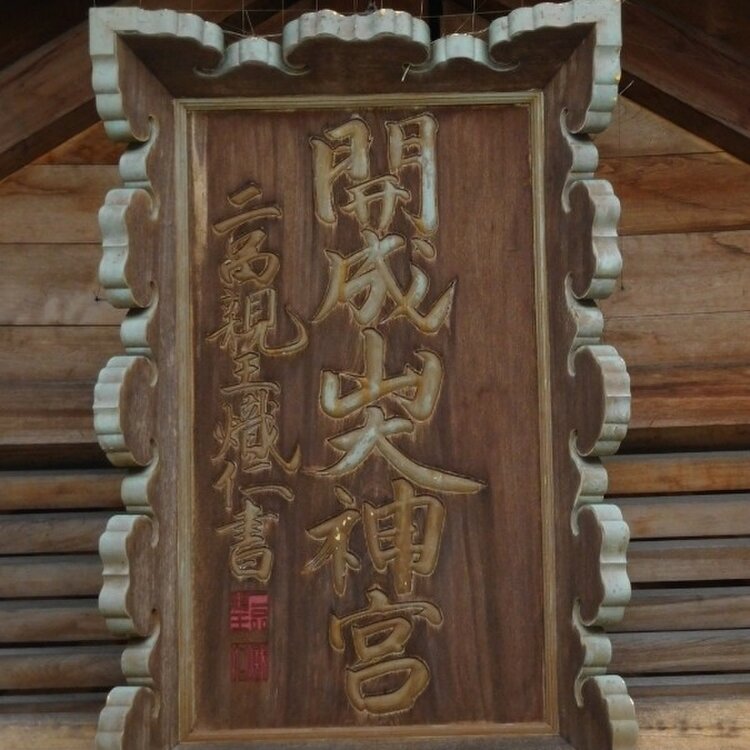 開成山大神宮
二品親王熾仁書